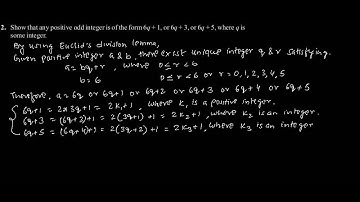 2. Show that any positive odd integer is of the form 6q + 1, or 6q + 3, or 6q + 5, where q is
some integer.
By using Euclid's division lemma,
Given positive integer a & b, there exist unique integer q & r satisfying.
a = bq + r , where 0 ≤ r < b
b = 6 0 ≤ r < 6 or r = 0, 1, 2, 3, 4, 5
Therefore, a = 6q or 6q+1 or 6q+2 or 6q+3 or 6q+4 or 6q+5
6q+1 = 2×3q+1 = 2K₁+1 , where K₁ is a positive integer.
6q+3 = (6q+2)+1 = 2(3q+1)+1 = 2K₂+1 , where K₂ is an integer.
6q+5 = (6q+4)+1 = 2(3q+2)+1 = 2K₃+1, where K₃ is an integer